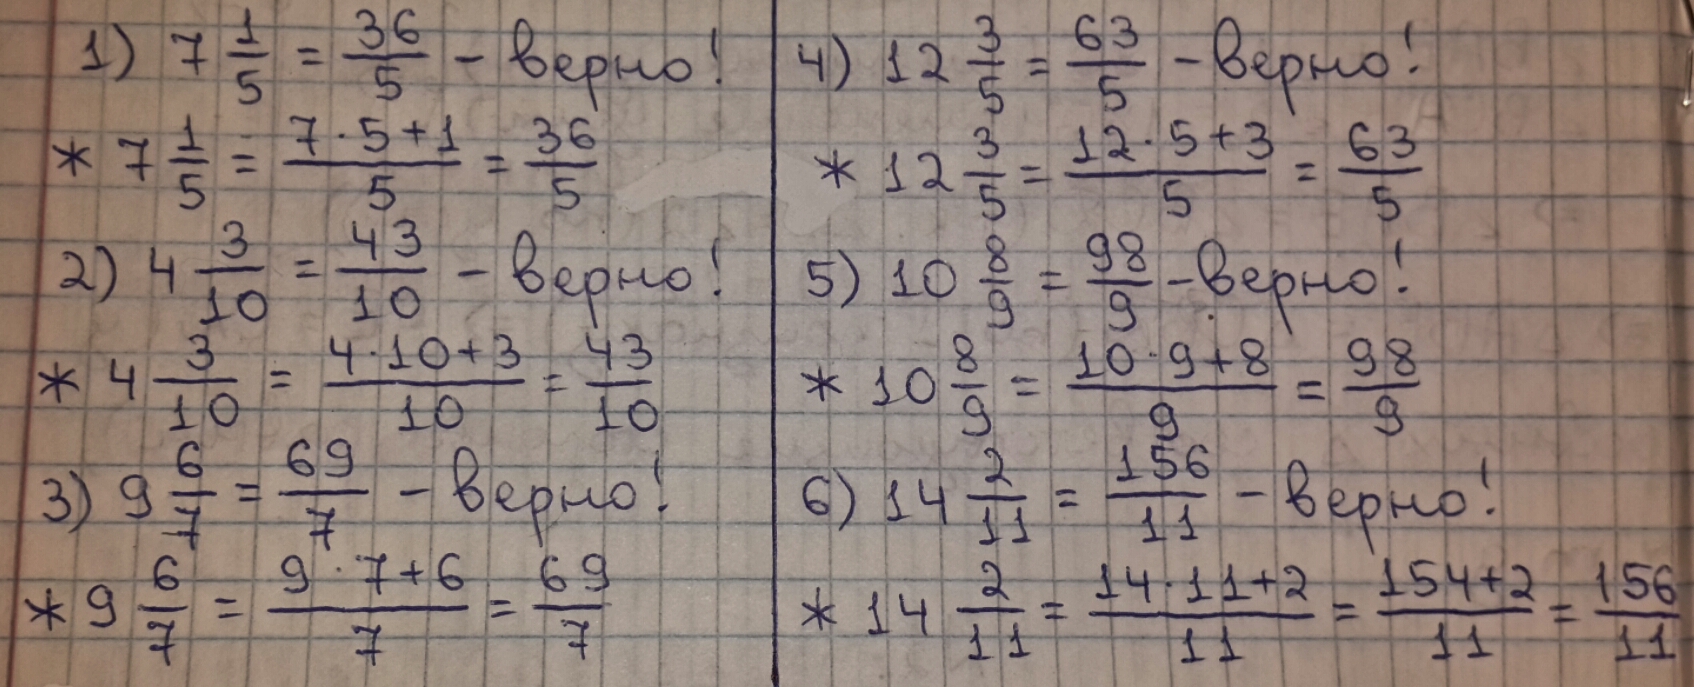 1) 7 1/5 = 36/5 - верно!
* 7 1/5 = (7·5+1)/5 = 36/5
2) 4 3/10 = 43/10 - верно!
* 4 3/10 = (4·10+3)/10 = 43/10
3) 9 6/7 = 69/7 - верно!
* 9 6/7 = (9·7+6)/7 = 69/7
4) 12 3/5 = 63/5 - верно!
* 12 3/5 = (12·5+3)/5 = 63/5
5) 10 8/9 = 98/9 - верно!
* 10 8/9 = (10·9+8)/9 = 98/9
6) 14 2/11 = 156/11 - верно!
* 14 2/11 = (14·11+2)/11 = (154+2)/11 = 156/11